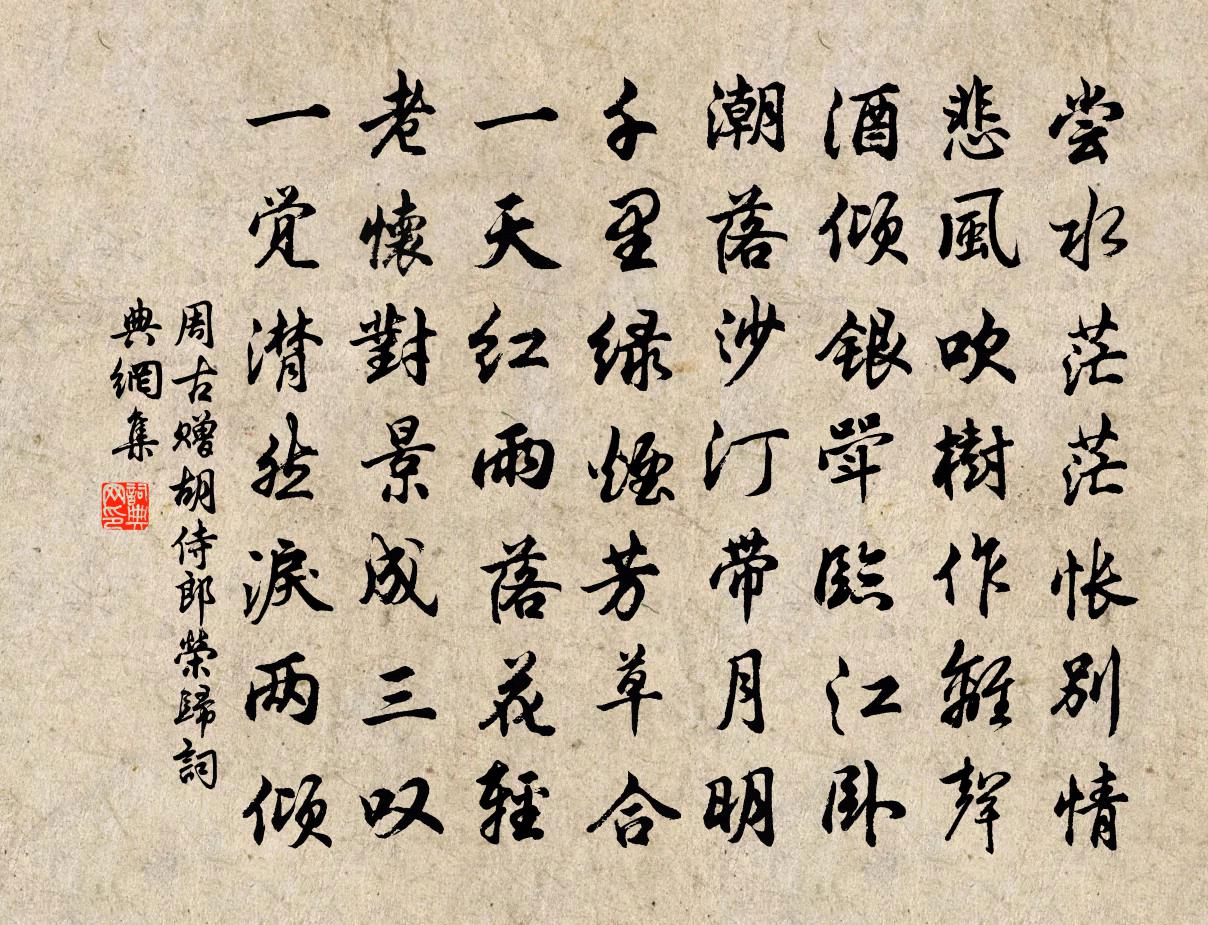 尝水茫茫怅别情
悲風吹樹作離聲
酒倾銀斝臨江卧
潮落沙汀带月明
千里绿煙芳草合
一天红雨落花輕
老懷對景成三叹
一觉潸然淚两倾
周古赠胡侍郎榮歸詞
典網集
詞典网印